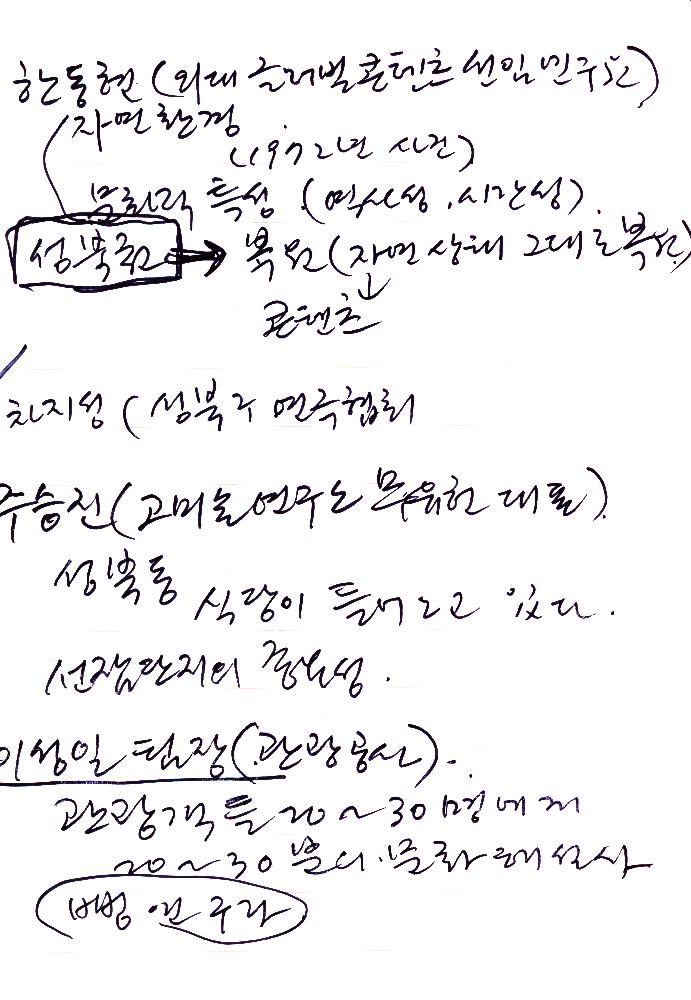 한동현 (외대 글로벌콘텐츠 선임연구원)
자연환경
(1972년 사건)
문화적 특성 (역사성, 시간성)
성북천 → 복원 (자연상태 그대로 복원)
↓
콘텐츠
차지성 (성북구 연극협회
주승진 (고미술연구소 대표)
성북동 식당이 들어오고 있다.
선잠단지의 중요성.
이성일 팀장 (관광공사).
관광객들 20~30명에게
20~30분의 문화해설사